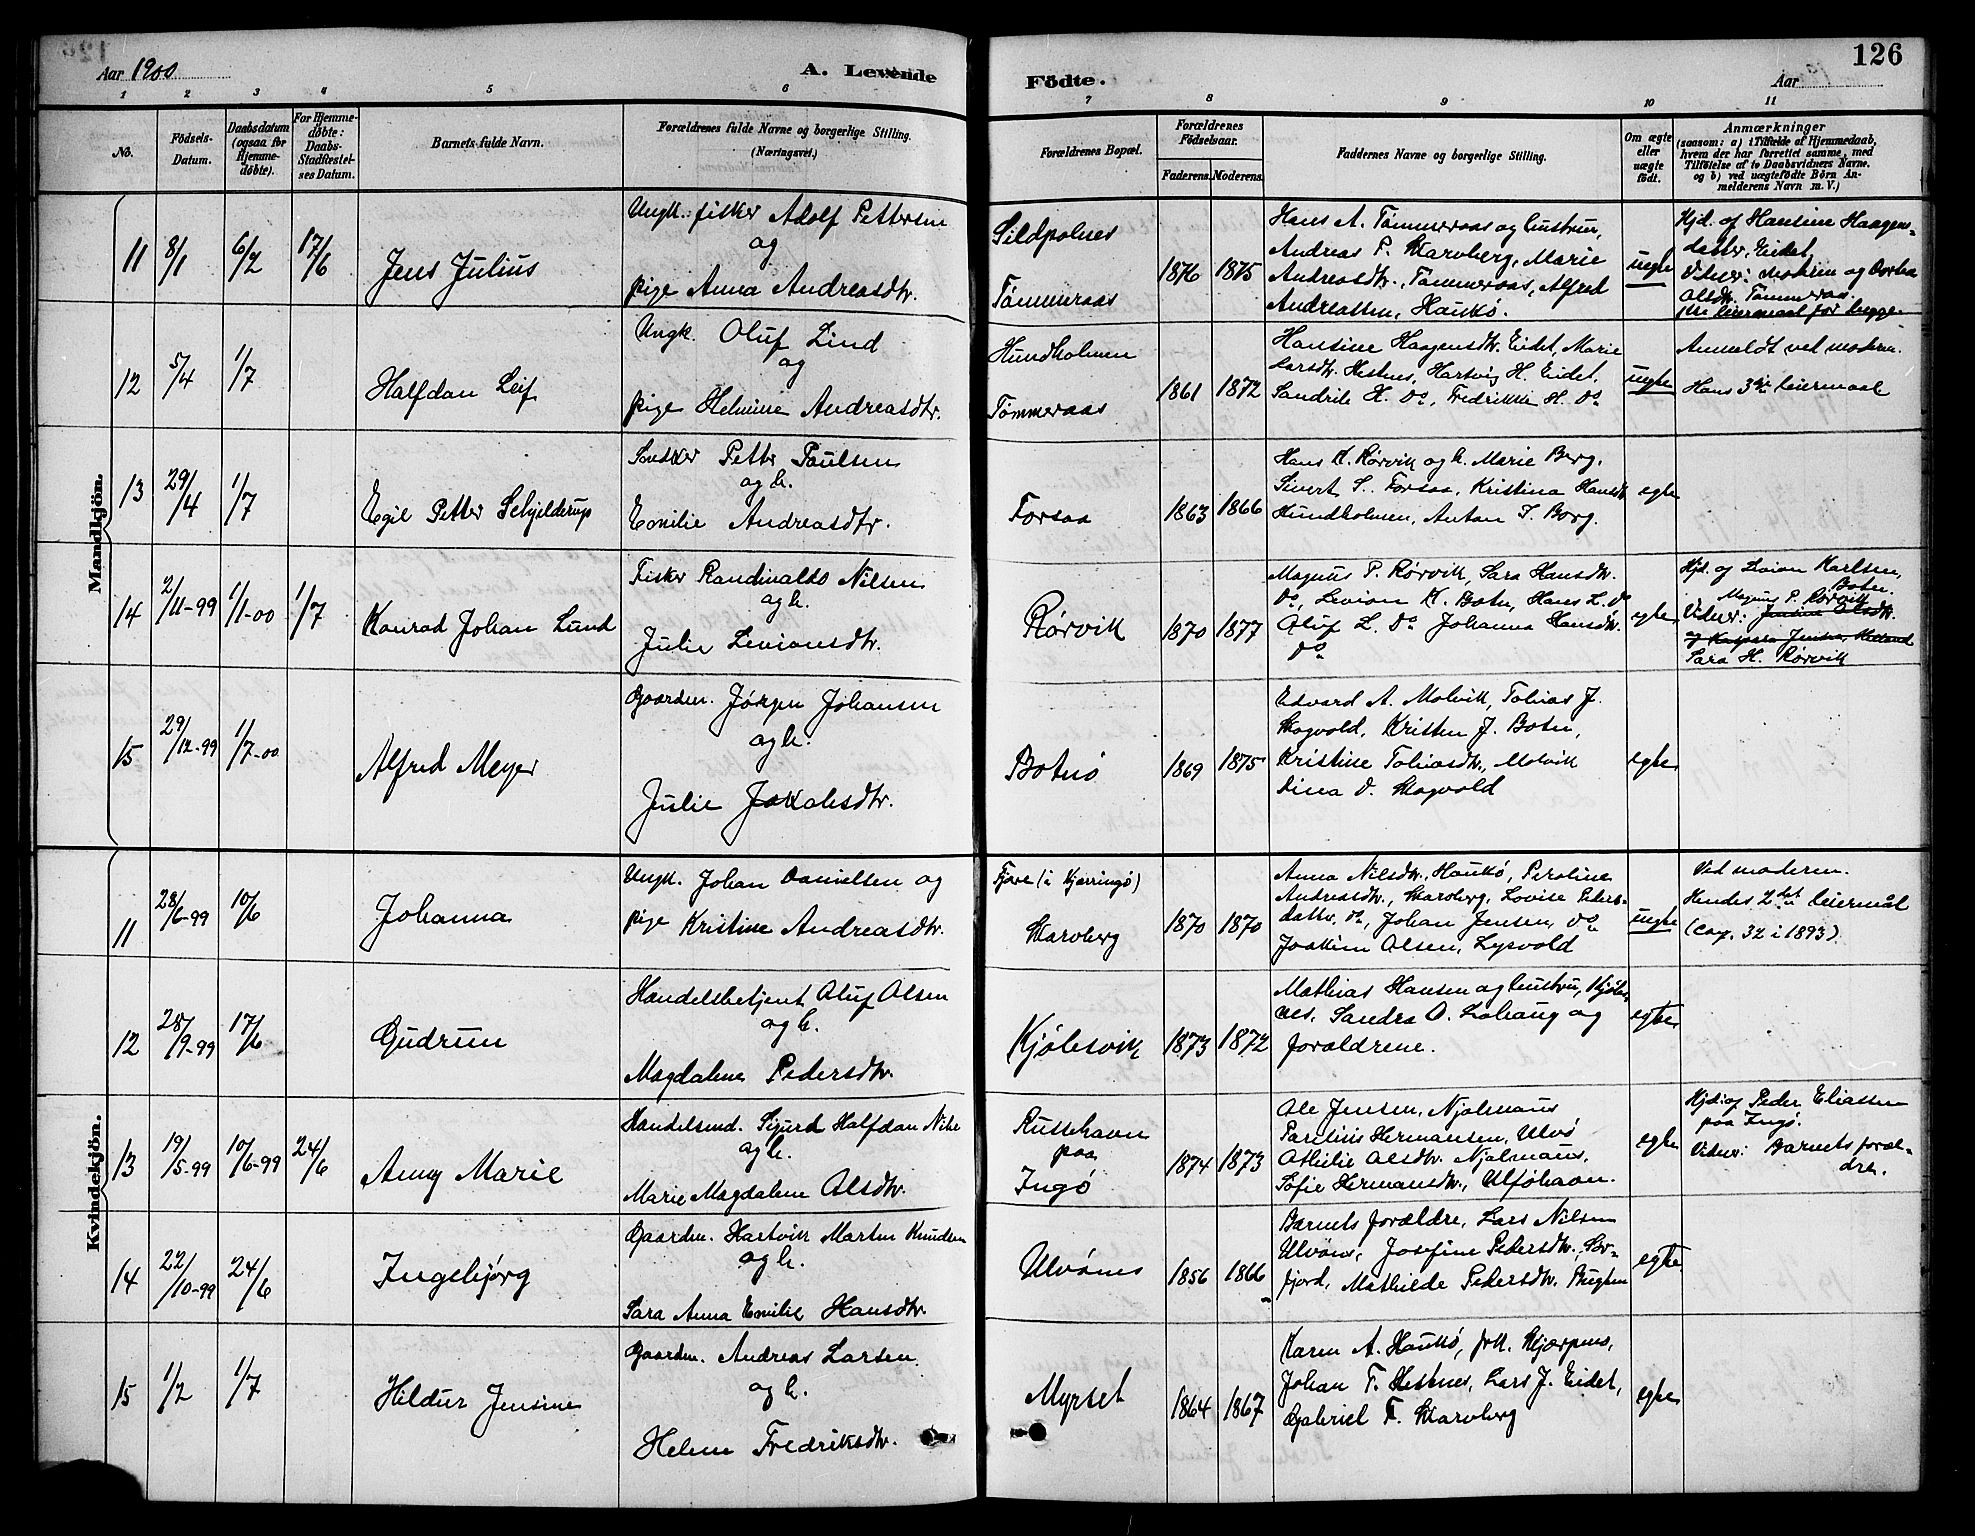 Aar 1900
A. Levende
Födte.
Aar
126
1 2 3 4 5 6 7 8 9 10 11
No.
Födsels-
Datum.
Daabsdatum
(ogsaa for
Hjemme-
døbte).
For Hjemme-
døbte:
Daabs-
Stadfæstel-
ses Datum.
Barnets fulde Navn.
Forældrenes fulde Navne og borgerlige Stilling.
(Næringsvei.)
Forældrenes Bopæl.
Forældrenes
Födselsaar.
Faderens. Moderens.
Faddernes Navne og borgerlige Stilling.
Om ægte
eller
uægte
født.
Anmærkninger
(saasom: a) i Tilfælde af Hjemmedaab,
hvem der har forrettet samme, med
Tilføielse af to Daabsvidners Navne.
og b) ved uægtefødte Börn An-
melderens Navn m. V.)
Mandkjön.
11 8/1 6/2 17/6
Jens Julius
Ungk. fisker Adolf Pettersen
og
pige Anna Andreasdtr.
Sildpolnes
Tømmeraas
1876 1875
Hans A. Tømmeraas og hustru,
Andreas P. Skarvberg, Marie
Andreasdtr., Tømmeraas, Alfred
Andreassen, Haukø.
uegte
Hjd. af Hansine Haagens-
datter, Eidet
Vidner: moderen og
Olsdtr. Tømmeraas
leiermaal for begge
12 5/4 1/7
Halfdan Leif
Ungk. Oluf Lind
og
pige Helmine Andreasdtr.
Hundholmen
Tømmeraas
1861 1872
Hansine Haagensdtr. Eidet, Marie
Larsdtr. Hestnes, Hartvig H. Eidet,
H. Do, Fredrikke H. Do
uegte
Anmeldt ved moderen.
Hans 3die leiermaal
13 29/4 1/7
Egil Petter Schjelderup
Petter Paulsen
og h.
Emilie Andreasdtr.
Forsaa
1863 1866
Hans K. Rørvik og h. Marie Berg,
Sivert S. Forsaa, Kristina Hansdtr
Hundholmen, Anton J. Borg.
egte
14 2/11-99 1/1-00 1/7
Konrad Johan Lund
Fisker Randivaldo Nilsen
og h.
Julie Levionsdtr.
Rørvik
1870 1877
Magnus P. Rørvik, Sara Hansdtr.
Do, Levion K. Botn, Hans L. Do
Oluf L. Do Johanna Hansdtr.
Do
egte
Hjd. af Levion Karlsen,
Botn.
Magnus P. Rørvik
Vidner:
Sara H. Rørvik
15 29/12-99 1/7-00
Alfred Meyer
Gaardm. Jørgen Johansen
og h.
Julie Jakobsdtr.
Botnø
1869 1875
Edvard A. Molvik, Tobias J.
Skogvold, Kristen J. Botn,
Kristine Tobiasdtr., Molvik
Dina D. Skogvold
egte
Kvindekjön.
11 28/6-99 10/6
Johanna
Ungk. Johan Danielsen og
pige Kristine Andreasdtr.
Fjære (i Kjærringø)
Skarvberg
1870 1870
Anna Nilsdtr., Haukø, Peroline
Andreasdtr., Skarvberg, Lovise Peders-
datter, Do, Johan Jensen, Do
Joakim Olsen, Lysvold
uegte
Ved moderen.
Hendes 2det leiermål
(cay. 32 i 1893).
12 28/9-99 17/6
Gudrun
Handelsbetjent Oluf Olsen
og h.
Magdalene Pedersdtr.
Kjølesvik
1873 1872
Mathias Hansen og hustru, Kjøles-
nes, Sandra O. Løhaug og
forældrene.
egte
13 19/5-99 10/6-99 24/6
Anny Marie
Handelsmd. Sigurd Halfdan
og h.
Marie Magdalene Olsdtr.
Russehavn
paa
Ingø
1874 1873
Ole Jensen, Njolmaus
Paulius Hermansen, Ulvø
Othilie Olsdtr. Njolmaus,
Sofie Hermansdtr., Ulføhavn.
egte
Hjd. af Peder Eliassen
paa Ingø.
Vidner: Barnets foræl-
dre.
14 22/10-99 24/6
Ingebjørg
Gaardm. Hartvik Martin Knudsen
og h.
Sara Anna Emilie Hansdtr.
Ulvønes
1856 1866
Barnets forældre, Lars Nilsen
Ulvønes, Josefine Pedersdtr., Sør-
fjord, Mathilde Pedersdtr. Bugten
egte
15 1/2 1/7
Hildur Jensine
Gaardm. Andreas Larsen
og h.
Helene Fredriksdtr.
Myrset
1864 1867
Karen A. Haukø, frk. Skjærpnes,
Johan F. Hestnes, Lars J. Eidet,
Gabriel F. Skarvberg
egte